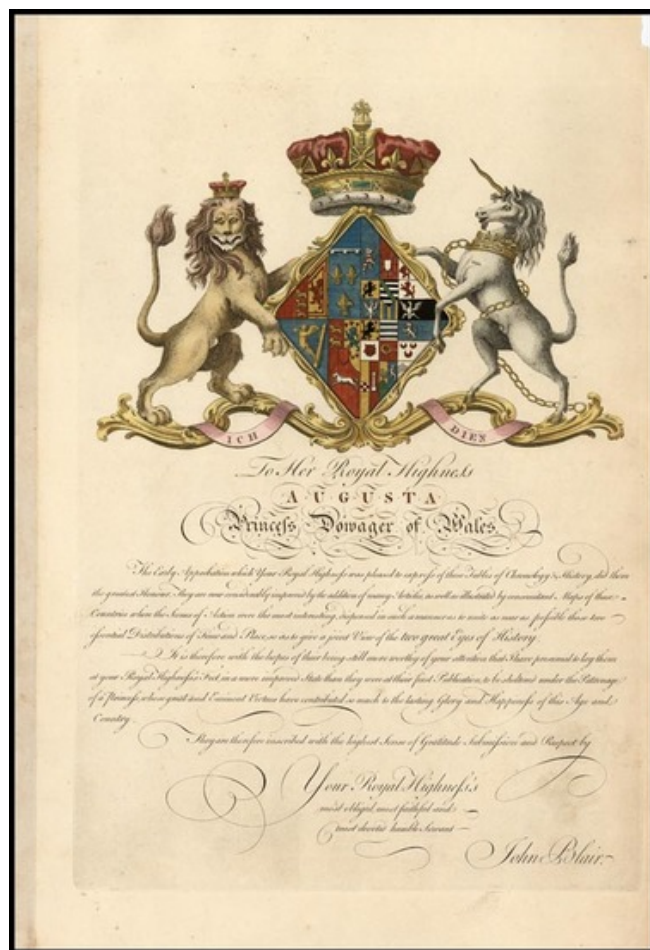 ICH
DIEN
To Her Royal Highneſs
AUGUSTA
Princeſs Dowager of Wales
The Early Approbation which Your Royal Highneſs was pleased to expreſs of these Tables of Chronology & History, did them
the greatest Honour. They are now considerably improved by the addition of many Articles, as well as illustrated by concomitant Maps of those
Countries where the Scenes of Action were the most interesting, disposed in such a manner as to unite as near as poſsible those two
eſsential Distributions of Time and Place, so as to give a joint View of the two great Eyes of History.
It is therefore with the hopes of their being still more worthy of your attention that I have presumed to lay them
at your Royal Highneſs's Feet, in a more improved State than they were at their first Publication, to be sheltered under the Patronage
of a Princeſs, whose great and Eminent Virtues have contributed so much to the lasting Glory and Happineſs of this Age and
Country.
They are therefore inscribed with the highest Sense of Gratitude Submiſsion and Respect by
Your Royal Highneſs's
most obliged, most faithful and
most devoted humble Servant
John Blair.